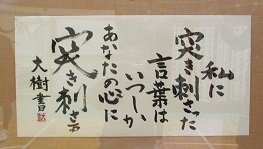 私に
突き刺さった
言葉は
いつしか
あなたの心に
突き刺さる
大樹書